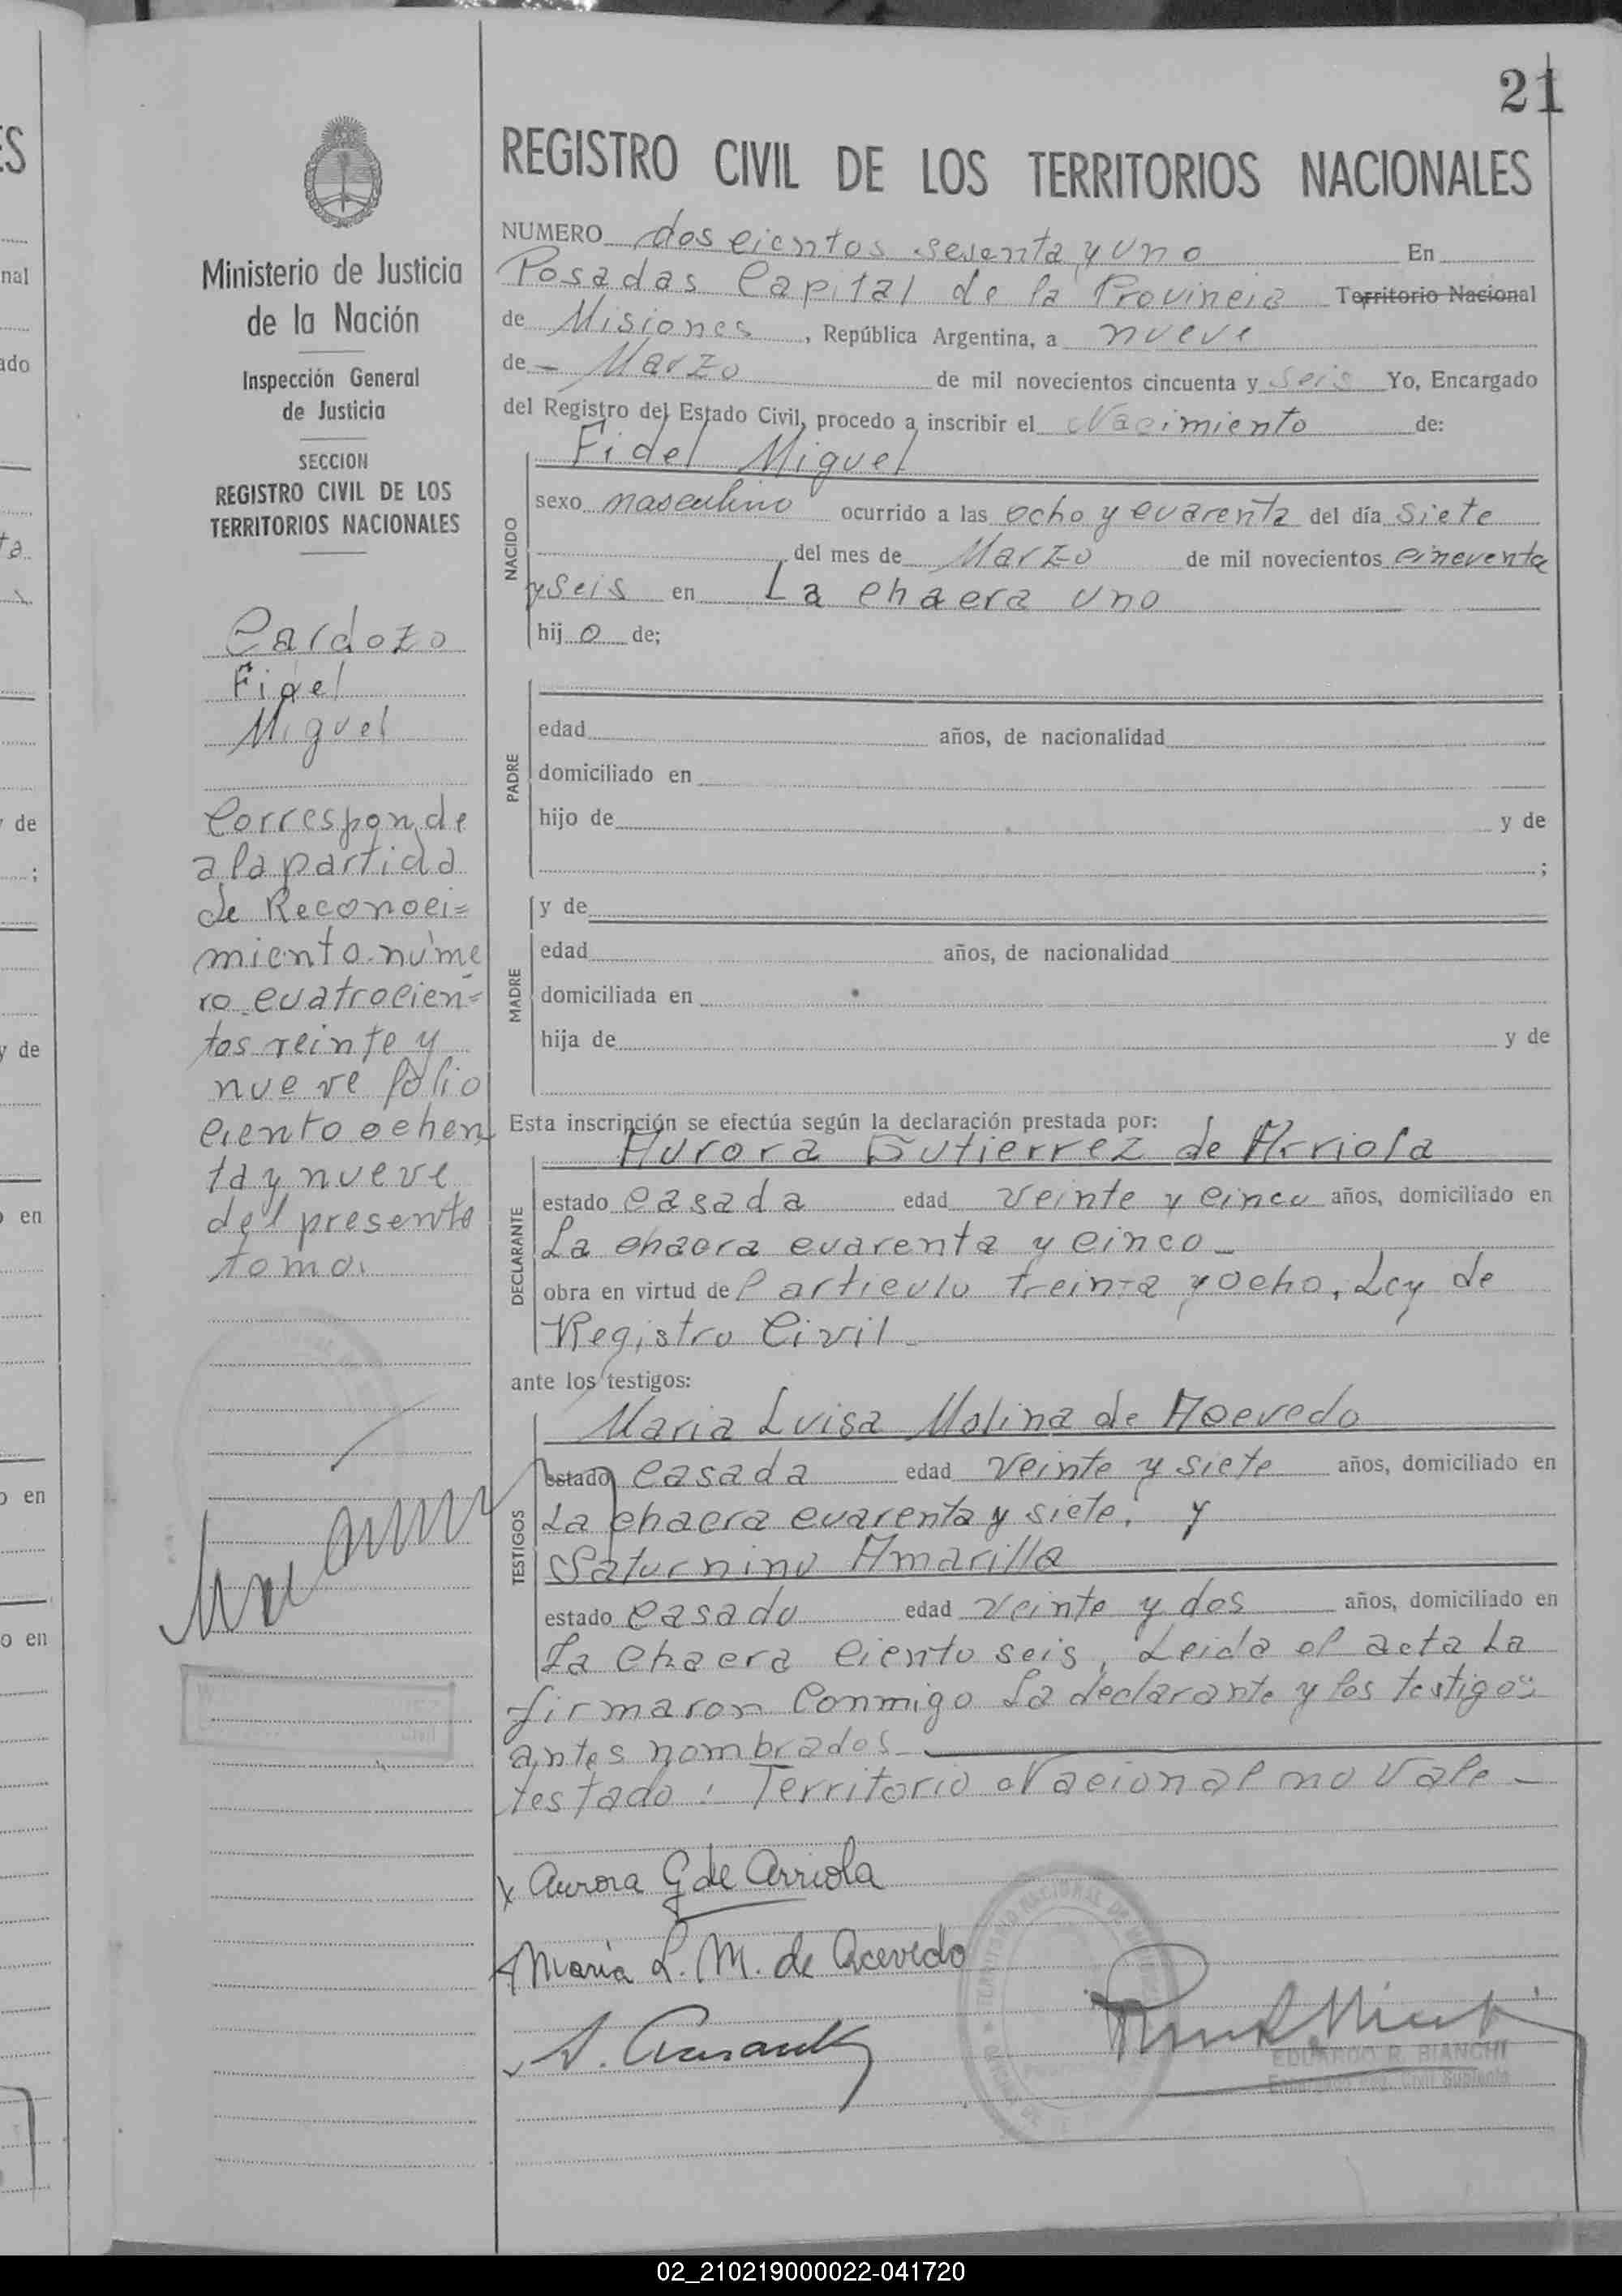 21
REGISTRO CIVIL DE LOS TERRITORIOS NACIONALES
Ministerio de Justicia
de la Nación
Inspección General
de Justicia
SECCION
REGISTRO CIVIL DE LOS
TERRITORIOS NACIONALES
Cardozo
Fidel
Miguel
Corresponde
a la partida
de Reconoci=
miento núme
ro cuatrocien=
tos veinte y
nueve folio
ciento ochen
ta y nueve
del presente
tomo.
NUMERO doscientos sesenta y uno En
Posadas Capital de la Provincia Territorio Nacional
de Misiones, República Argentina, a nueve
de - Marzo de mil novecientos cincuenta y seis Yo, Encargado
del Registro del Estado Civil, procedo a inscribir el Nacimiento de:
Fidel Miguel
NACIDO
sexo masculino ocurrido a las ocho y cuarenta del día siete
del mes de Marzo de mil novecientos cincuenta
y seis en La chacra uno
hijo de;
PADRE
edad años, de nacionalidad
domiciliado en
hijo de y de
;
y de
MADRE
edad años, de nacionalidad
domiciliada en
hija de y de
Esta inscripción se efectúa según la declaración prestada por:
Aurora Gutierrez de Arriola
DECLARANTE
estado casada edad veinte y cinco años, domiciliado en
La chacra cuarenta y cinco -
obra en virtud del articulo treinta y ocho, Ley de
Registro Civil -
ante los testigos:
Maria Luisa Molina de Acevedo
TESTIGOS
estado casada edad veinte y siete años, domiciliado en
La chacra cuarenta y siete, y
Saturnino Amarilla
estado casado edad veinte y dos años, domiciliado en
La chacra ciento seis, Leida el acta La
firmaron conmigo la declarante y los testigos
antes nombrados
testado: Territorio Nacional no vale -
x Aurora G de Arriola
x Maria L. M. de Acevedo
EDUARDO R. BIANCHI
Encargado Reg. Civil Suplente
02_210219000022-041720